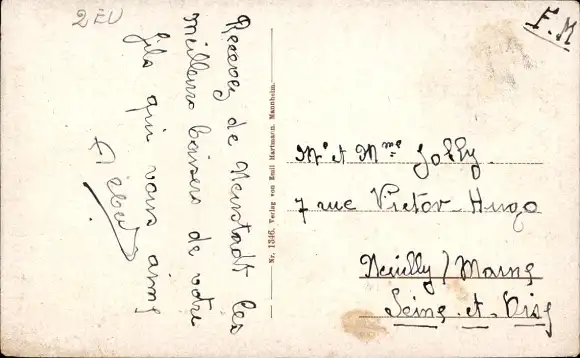 2 EU
F. M
Recevez de Neustadt les
meilleurs baisers de votre
fils qui vous aime
Nr. 1346, Verlag von Emil Hartmann, Mannheim.
Mr et Mme Jolly
7 rue Victor-Hugo
Neuilly / Marne
Seine-et-Oise